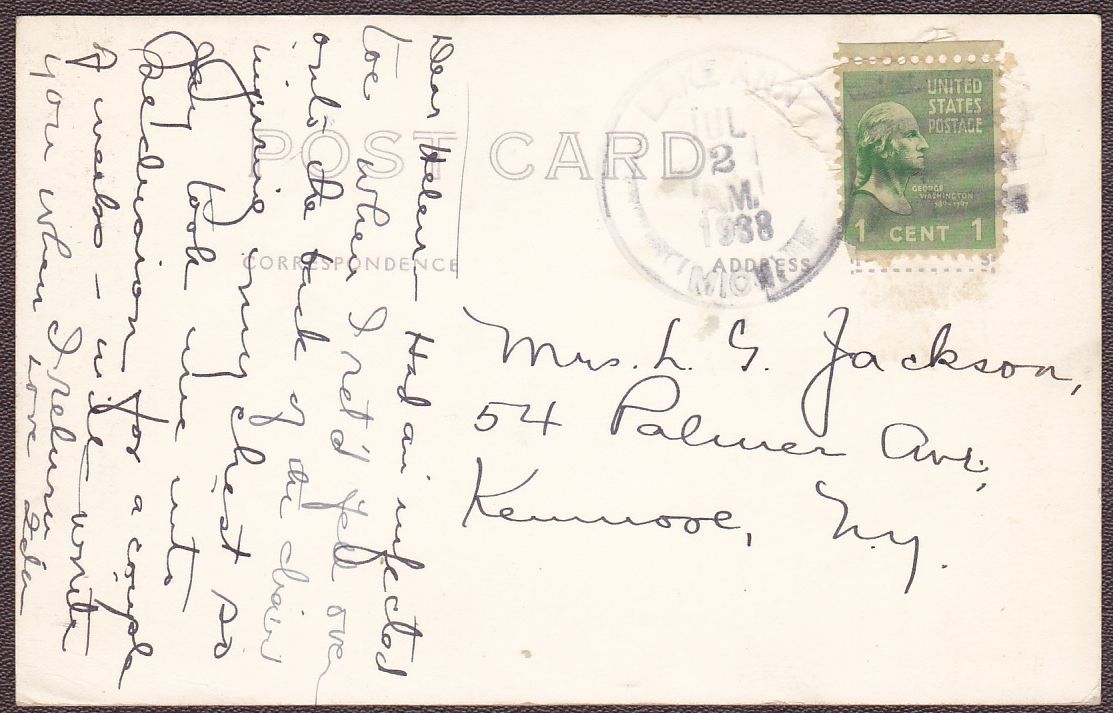 POST CARD
CORRESPONDENCE
ADDRESS
LAKE ANN
JUL
2
A.M.
1938
MICH
UNITED
STATES
POSTAGE
GEORGE
WASHINGTON
1789-1797
1 CENT 1
Mrs. L. G. Jackson,
54 Palmer Ave.,
Kenmore, N.Y.
Dear Helen - Had an infected
toe when I ret'd fell over
onto the back of the chair
injuring my chest so
took me into
for a couple
of weeks - will write
you when I return
Love